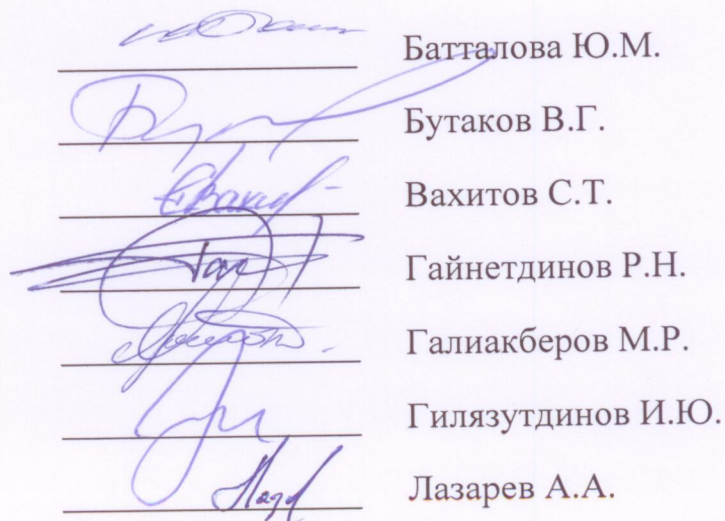 Батталова Ю.М.
Бутаков В.Г.
Вахитов С.Т.
Гайнетдинов Р.Н.
Галиакберов М.Р.
Гилязутдинов И.Ю.
Лазарев А.А.